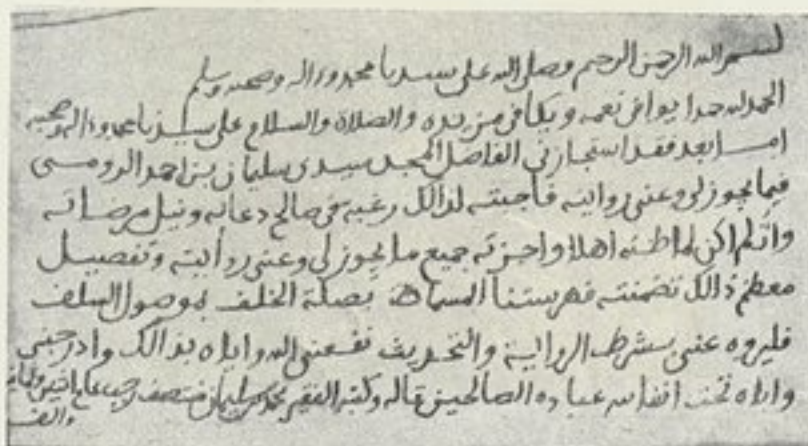 بسم الله الرحمن الرحيم وصلى الله على سيدنا محمد وءاله وصحبه وسلم
الحمد لله حمدا يوافى نعمه ويكافى مزيده والصلاة والسلام على سيدنا محمد وءاله وصحبه
امـا بعد فقد استجازنى الفاضل المجد سيدى سليمان بن احمد
فيما يجوز لى وعنى روايته فاجبته لذالك رغبة فى صالح دعائه ونيل مرضاته
وان لم اكن لما ظنه اهلا واجزته جميع ما يجوز لى وعنى روايته وتفصيل
معظم ذالك تضمنته فهرستنا المسماة بصلة الخلف بموصول السلف
فليروه عنى بشرط الرواية والتحديث نفعنى الله واياه بذالك وادرجنى
واياه تحت انفاس عباده الصالحين قاله وكتبه الفقير محمد بن سليمان منتصف رجب عام
والف